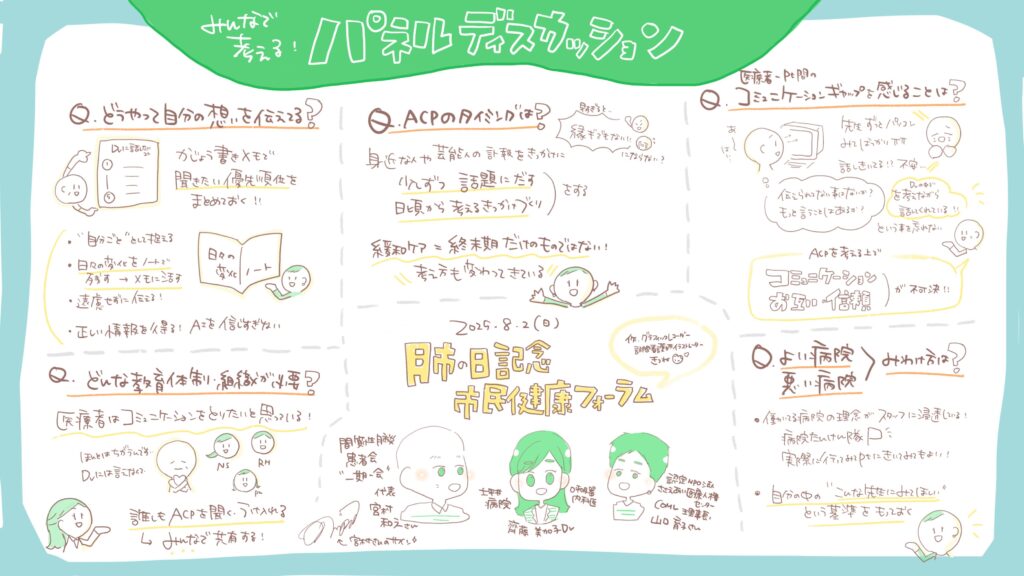 みんなで
考える！
パネルディスカッション
Q. どうやって自分の想いを伝えてる？
Drに話したい
かじょう書きメモで
聞きたい優先順位を
まとめておく!!
・"自分ごと"として捉える
・日々の変化をノートで
残す → メモに活す
・遠慮せずに伝える！
・正しい情報を得る！ AIを信じすぎない
日々の
変化
ノート
Q. ACPのタイミングは？
身近な人や芸能人の訃報をきっかけに
少しずつ 話題にだす
日頃から考えるきっかけづくり
をする
縁ぎでもない!!
にならない？
緩和ケア = 終末期だけのものではない！
考え方も変わってきている
医療者-Pt間の
Q. コミュニケーションギャップを感じることは？
あ…
先生ずっとパソコン
みてばっかいます
話しきいてる!? 不安…
伝えられてない事はないか？
もっと言うことはあるか？
Drの中で
を考えながら
話してくれている！
という事を忘れない
ACPを考える上で
コミュニケーション
お互いの信頼
が不可決!!
Q. どんな教育体制・組織が必要？
医療者はコミュニケーションをとりたいと思っている！
ほんとはちがうんです…
Drには言えなくて…
NS
RH
誰もがACPを聞く、うけいれる
↳ みんなで共有する！
2025.8.2(日)
肺の日記念
市民健康フォーラム
作. グラフィックレコーダー
間質性肺炎
患者会
"一期一会"
代表
宮村
和之さん
宮村さんのサイン♪
病院
呼吸器
内科医
齊藤 美加子Dr
認定NPO法人
ささえあい医療人権
センター
COML 理事長
山口 育子さん
Q. よい病院
悪い病院
みわけ方は？
・働いてる病院の理念がスタッフに浸透している！
病院たんけん隊
実際に行ってみてptにきいてみてもよい！
・自分の中の "こんな先生にみてほしい"
という基準をもっておく